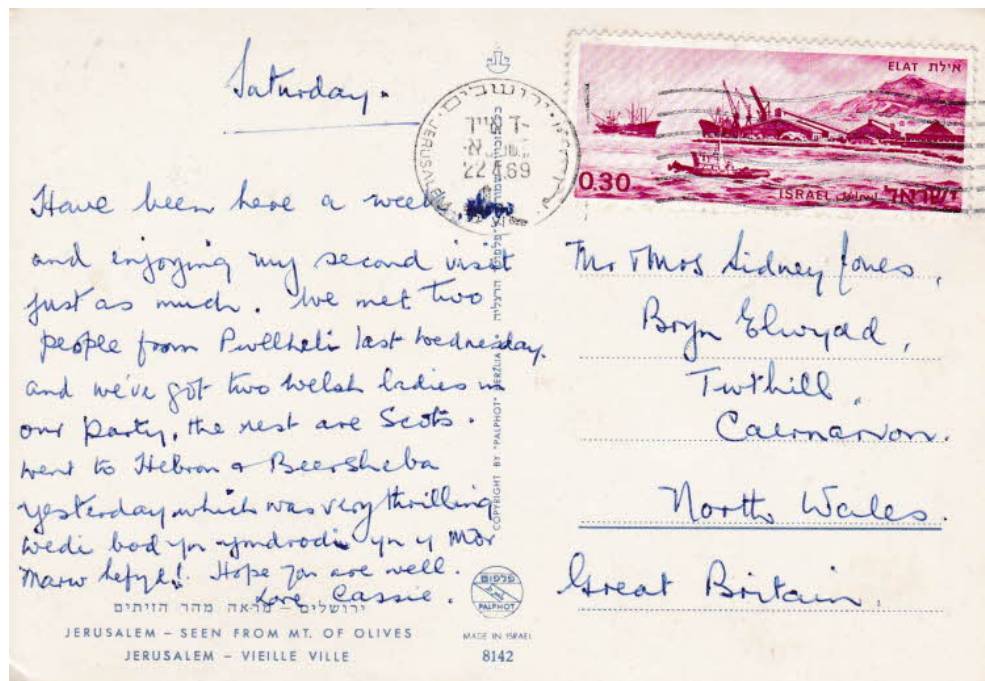 Saturday.
Have been here a week
and enjoying my second visit
just as much. We met two
people from Pwllheli last Wednesday.
and we've got two Welsh ladies in
our party, the rest are Scots.
Went to Hebron & Beersheba
yesterday which was very thrilling
Wedi bod yn ymdrochi yn y Môr
Marw hefyd! Hope you are well.
Love Cassie.
ירושלים – מראה מהר הזיתים
JERUSALEM – SEEN FROM MT. OF OLIVES
JERUSALEM – VIEILLE VILLE
ירושלים
JERUSALEM
22 4.69
COPYRIGHT BY "PALPHOT" HERZLIA
פלפוט
PALPHOT
MADE IN ISRAEL
8142
ELAT אילת
0.30
ISRAEL اسرائيل ישראל
Mr & Mrs Sidney Jones,
Bryn Elwydd,
Twthill,
Caernarvon.
North Wales.
Great Britain.